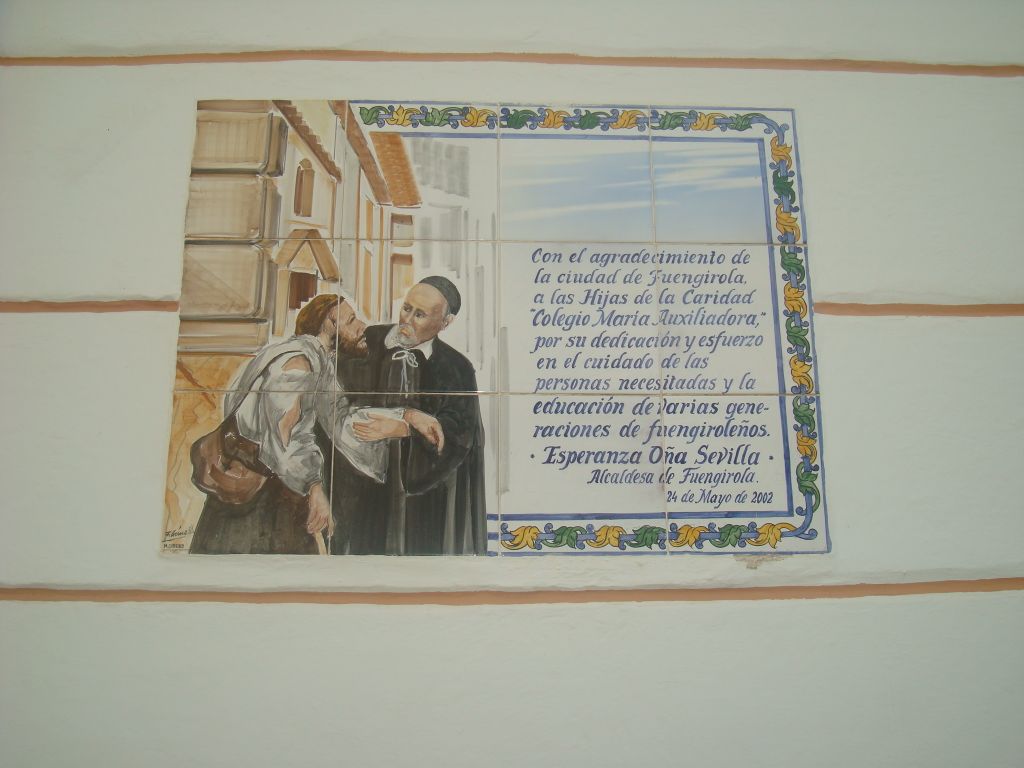 Con el agradecimiento de
la ciudad de Fuengirola,
a las Hijas de la Caridad
"Colegio María Auxiliadora,"
por su dedicación y esfuerzo
en el cuidado de las
personas necesitadas y la
educación de varias gene-
raciones de fuengiroleños.
· Esperanza Oña Sevilla ·
Alcaldesa de Fuengirola.
24 de Mayo de 2002